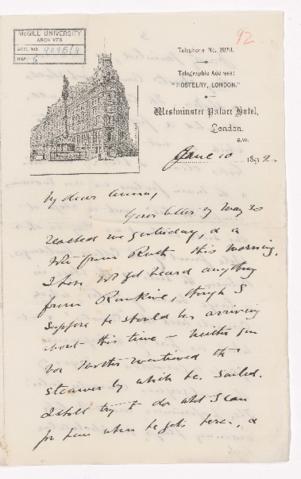 McGILL UNIVERSITY
ARCHIVES
ACC. NO.
REF. 6
92
Telephone No.
Telegraphic Address:
"HOSTELRY, LONDON."
Westminster Palace Hotel,
London.
S.W.
June 10 189
My dear
Your letter of May 30
reached me yesterday, & a
from this morning.
I have not yet heard anything
from Rankine, though I
suppose he should be arriving
about this time – neither you
nor mentioned the
steamer by which he sailed.
I shall try to do what I can
for him when he gets here, &